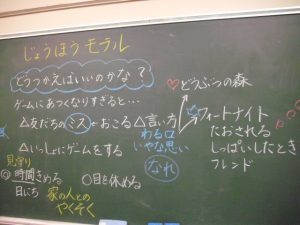 じょうほうモラル
どうつかえばいいのかな?
ゲームにあつくなりすぎると…
△友だちのミス←おこる △言い方
わる口
いやな思い
△いっしょにゲームをする
なれ
見守り
◎時間きめる ○目を休める
日にち 家の人との
やくそく
♡どうぶつの森
フォートナイト
たおされる
しっぱいしたとき
フレンド